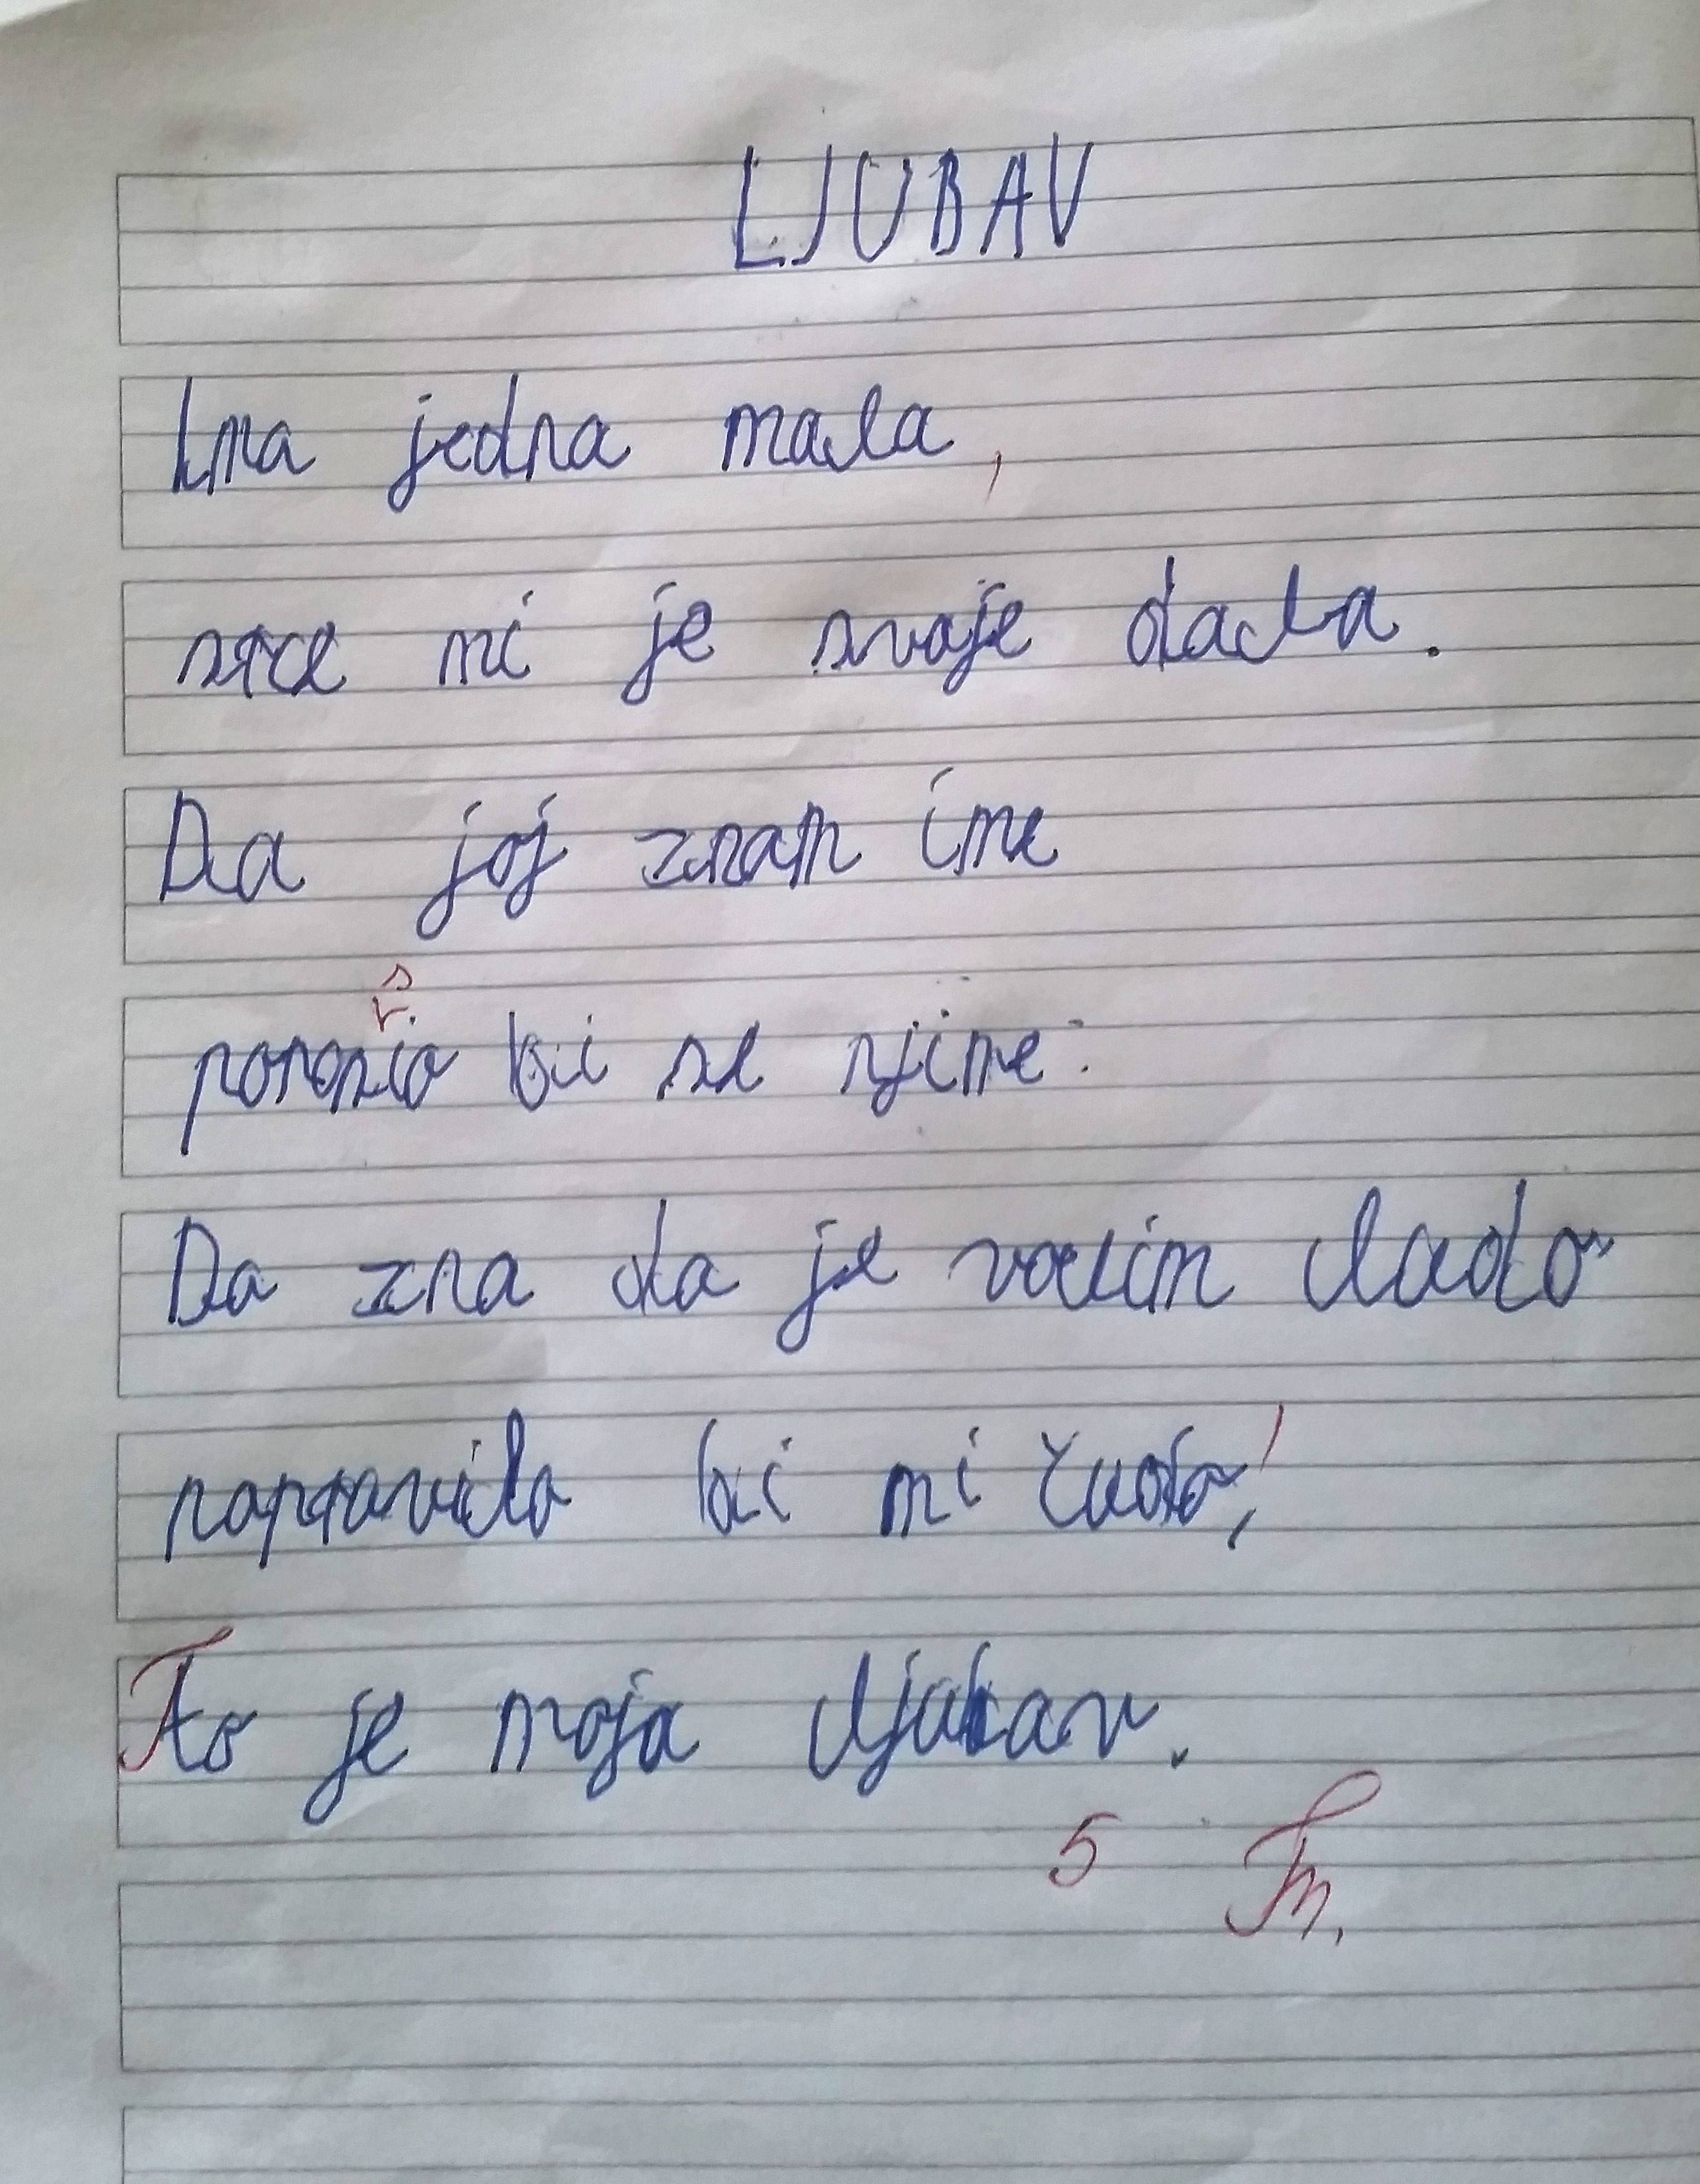 LJUBAV
Ima jedna mala,
srce mi je svoje dala.
Da joj znam ime
s
ponosio bi se njime.
Da zna da je volim ludo
napravila bi mi čudo,!
To je moja ljubav.
5